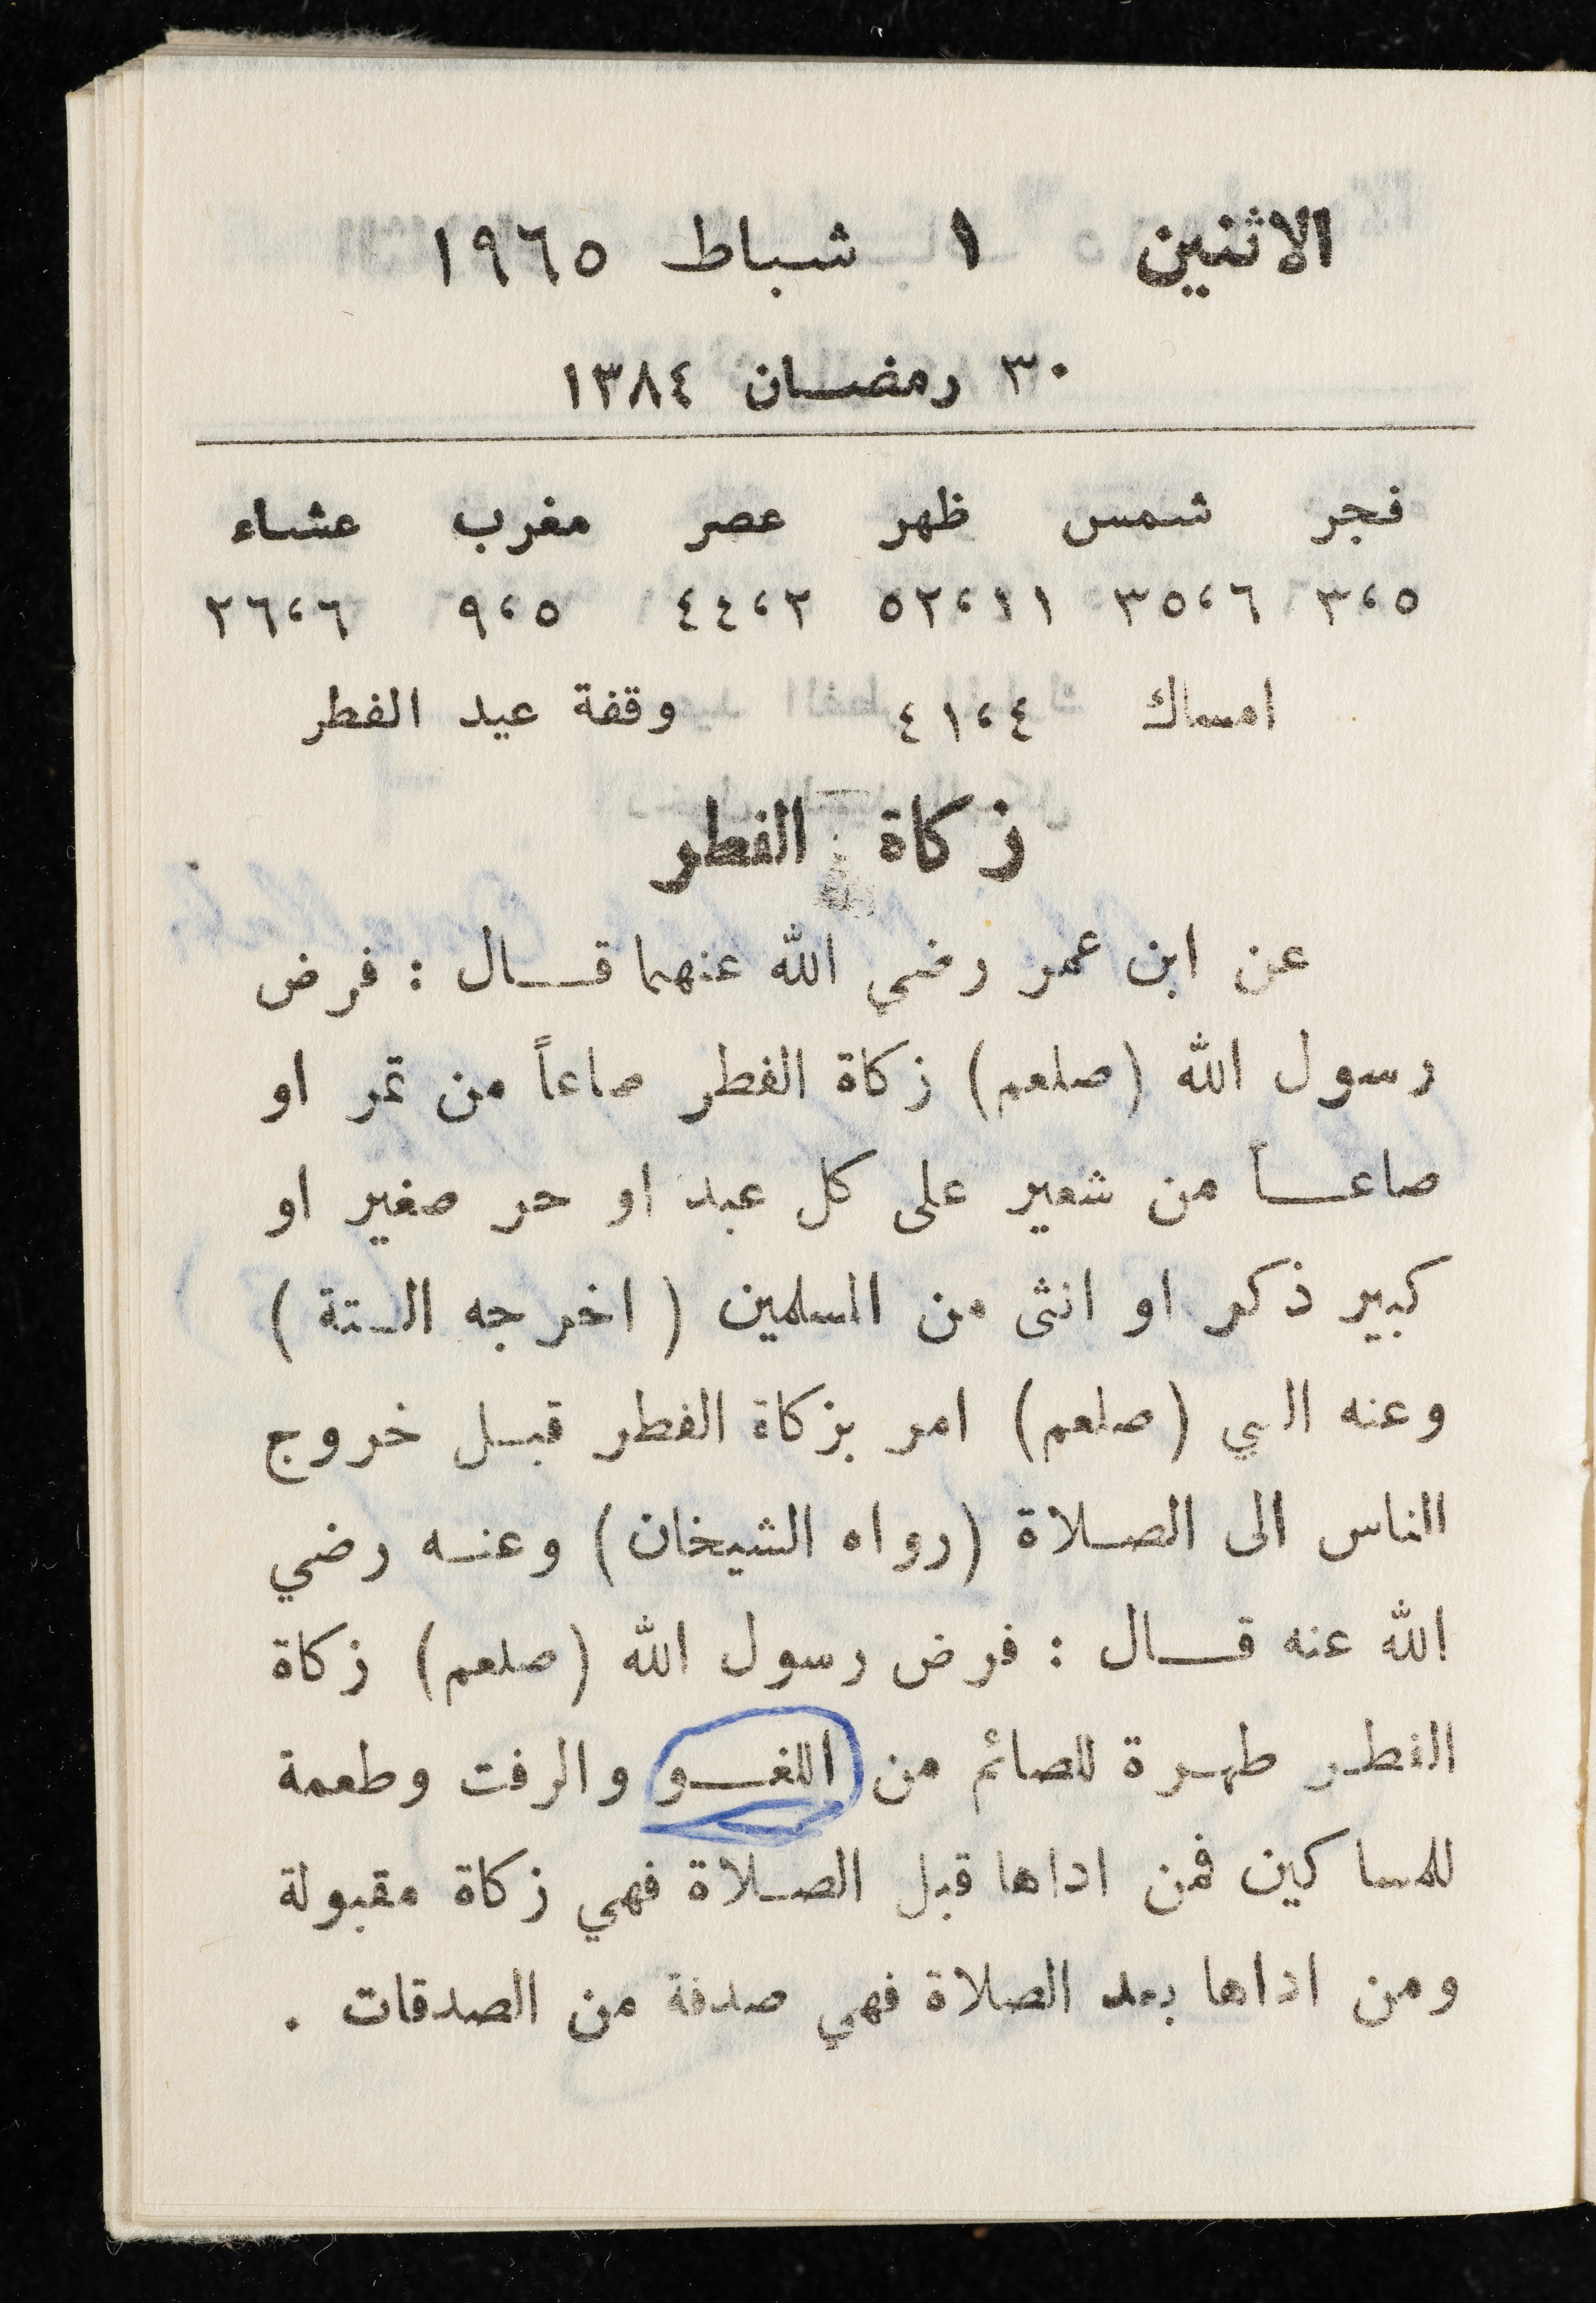 الاثنين ١ شباط ١٩٦٥
٣٠ رمضان ١٣٨٤
فجر شمس ظهر عصر مغرب عشاء
٣،٥ ٣٥،٦ ٥٢،١١ ٤٤،٢ ٩،٥ ٢٦،٦
امساك ٤١،٤ وقفة عيد الفطر
زكاة الفطر
عن ابن عمر رضي الله عنهما قال : فرض
رسول الله (صلعم) زكاة الفطر صاعاً من تمر او
صاعاً من شعير على كل عبد او حر صغير او
كبير ذكر او انثى من المسلمين ( اخرجه الستة )
وعنه البي (صلعم) امر بزكاة الفطر قبل خروج
الناس الى الصلاة (رواه الشيخان) وعنه رضي
الله عنه قال : فرض رسول الله (صلعم) زكاة
الفطر طهرة للصائم من اللغو والرفت وطعمة
للمساكين فمن اداها قبل الصلاة فهي زكاة مقبولة
ومن اداها بعد الصلاة فهي صدقة من الصدقات .